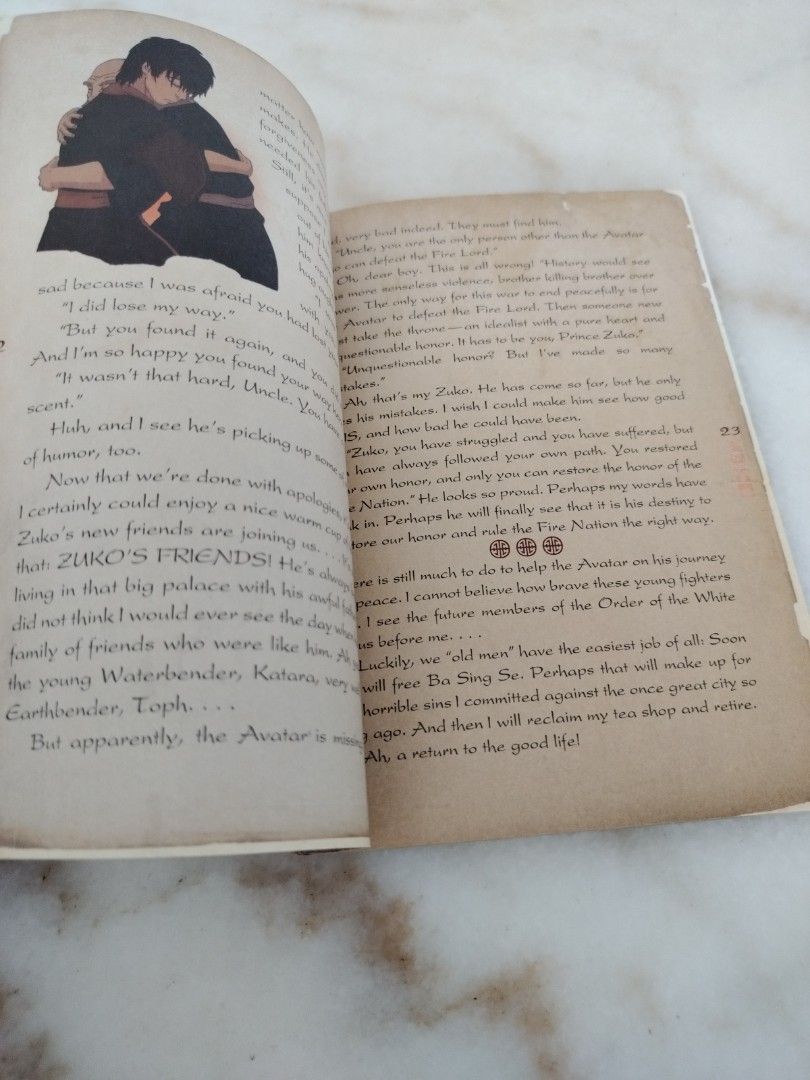 matter how
makes, the
forgiveness
needed
Still, it's
suppose
out of
him
his
hug
"I
with you
sad because I was afraid you had lost you
"I did lose my way."
"But you found it again, and you d
And I'm so happy you found your way he
"It wasn't that hard, Uncle. You have
scent."
Huh, and I see he's picking up some
of humor, too.
Now that we're done with apologies,
I certainly could enjoy a nice warm cup
Zuko's new friends are joining us. . . .
that: ZUKO'S FRIENDS! He's always
living in that big palace with his awful
did not think I would ever see the day when
family of friends who were like him. Ah,
the young Waterbender, Katara, very
Earthbender, Toph. . . .
But apparently, the Avatar is missing
d, very bad indeed. They must find him.
"Uncle, you are the only person other than the Avatar
o can defeat the Fire Lord."
Oh, dear boy. This is all wrong! "History would see
s more senseless violence, brother killing brother over
wer. The only way for this war to end peacefully is for
Avatar to defeat the Fire Lord. Then someone new
st take the throne—an idealist with a pure heart and
questionable honor. It has to be you, Prince Zuko."
"Unquestionable honor? But I've made so many
takes."
Ah, that's my Zuko. He has come so far, but he only
s his mistakes. I wish I could make him see how good
IS, and how bad he could have been.
"Zuko, you have struggled and you have suffered, but
have always followed your own path. You restored
r own honor, and only you can restore the honor of the
e Nation." He looks so proud. Perhaps my words have
k in. Perhaps he will finally see that it is his destiny to
tore our honor and rule the Fire Nation the right way.
ere is still much to do to help the Avatar on his journey
peace. I cannot believe how brave these young fighters
. I see the future members of the Order of the White
us before me. . . .
Luckily, we "old men" have the easiest job of all: Soon
will free Ba Sing Se. Perhaps that will make up for
horrible sins I committed against the once great city so
g ago. And then I will reclaim my tea shop and retire.
Ah, a return to the good life!
23